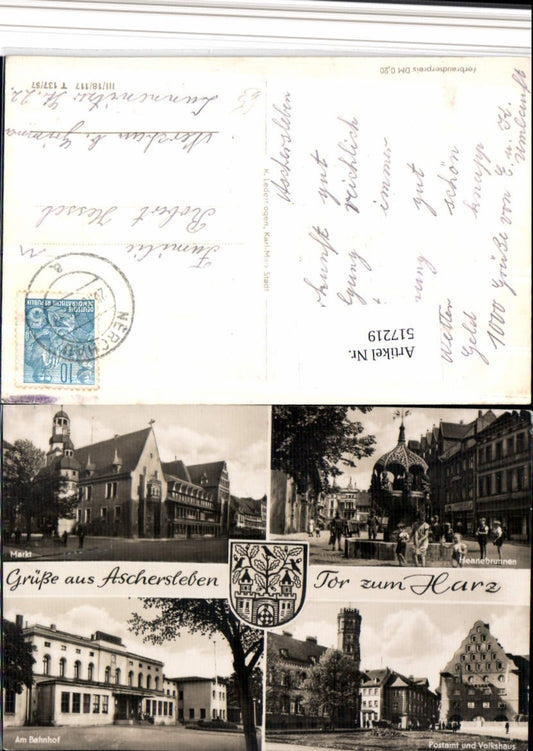 Verbraucherpreis DM 0,20
III/18/117 T 137/57
K. Lederbogen, Karl-Marx-Stadt
Aschersleben
gut
reichlich
immer
gut
schön
Wetter
knapp
Geld
1000 Grüße von E. u. K.
Familie
Robert Hessel
DEUTSCHE
DEMOKRATISCHE REPUBLIK
10
Artikel Nr.
517219
Markt
Hennebrunnen
Grüße aus Aschersleben
Tor zum Harz
Am Bahnhof
Postamt und Volkshaus